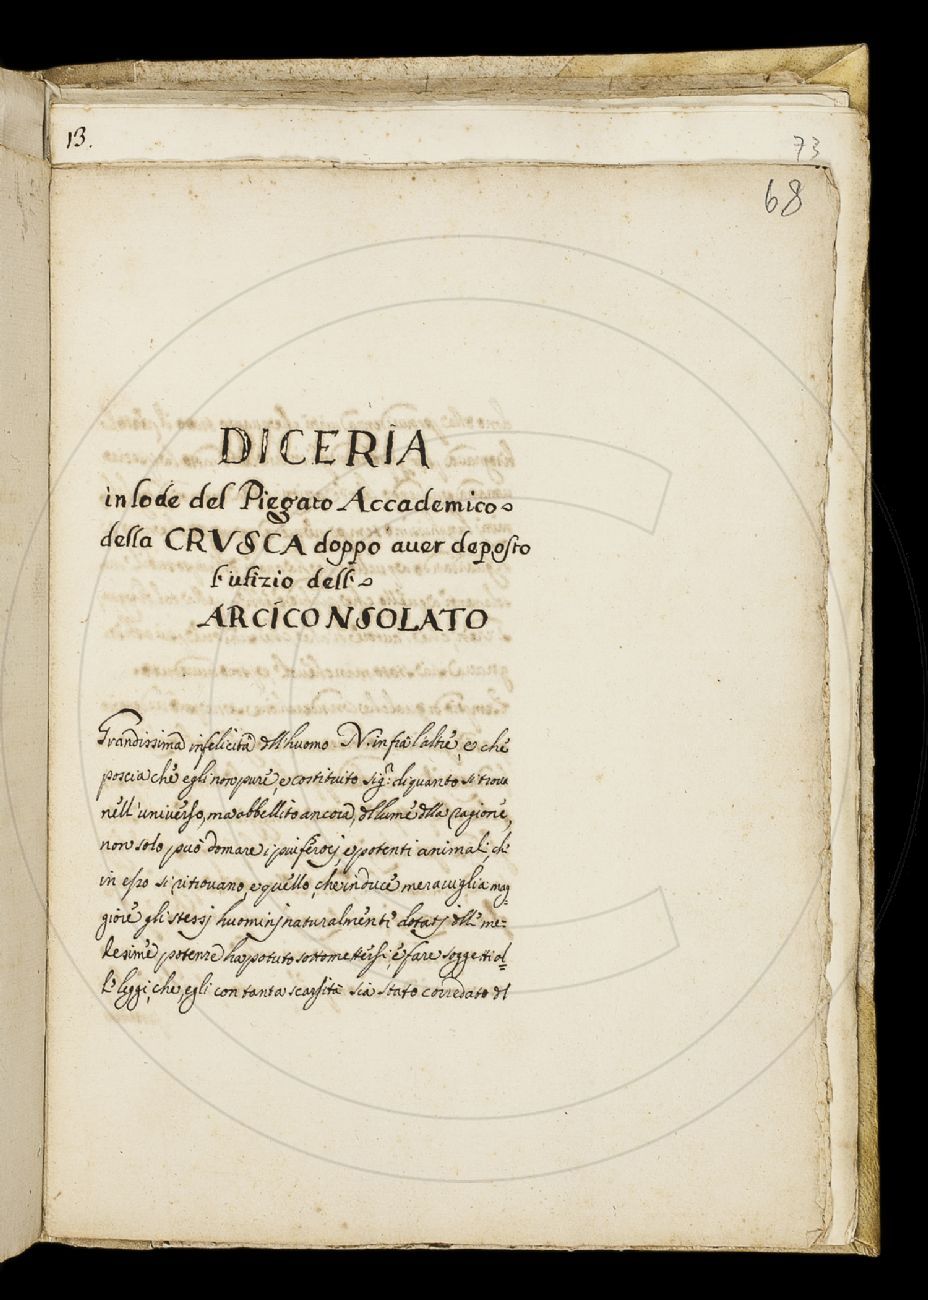 13.
73
68
DICERIA
in lode del Piegato Accademico
della CRVSCA doppo auer deposto
l'ufizio dell'
ARCICONSOLATO
Grandissima infelicità dell'huomo N. infra l'altre, e che
poscia che egli non pure, e costituito sig.r di quanto si troua
nell'uniuerso, ma abbellito ancora, del lume della ragione,
non solo può domare i piu feroci, e potenti animali, ch'
in esso si ritrouano, e quello, che induce merauiglia mag
giore gli stessi huominj naturalmente dotatj delle me=
desime potenze ha potuto sottomettersi, e fare soggetti al=
le leggi, che egli con tanta scarsità sia stato corredato di